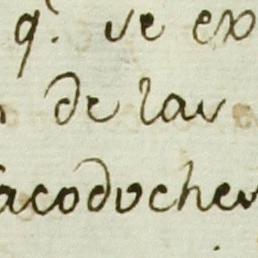 q.e se ex
de las
acodoches